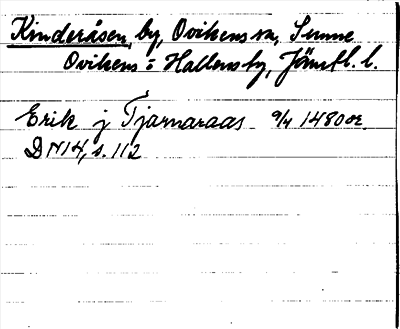 Kinderåsen, by, Ovikens sn, Sunne
Ovikens o Hallens by, Jämtl. l.
Erik j Tjarnaraas 9/4 1480 or.
DN 14, s. 112